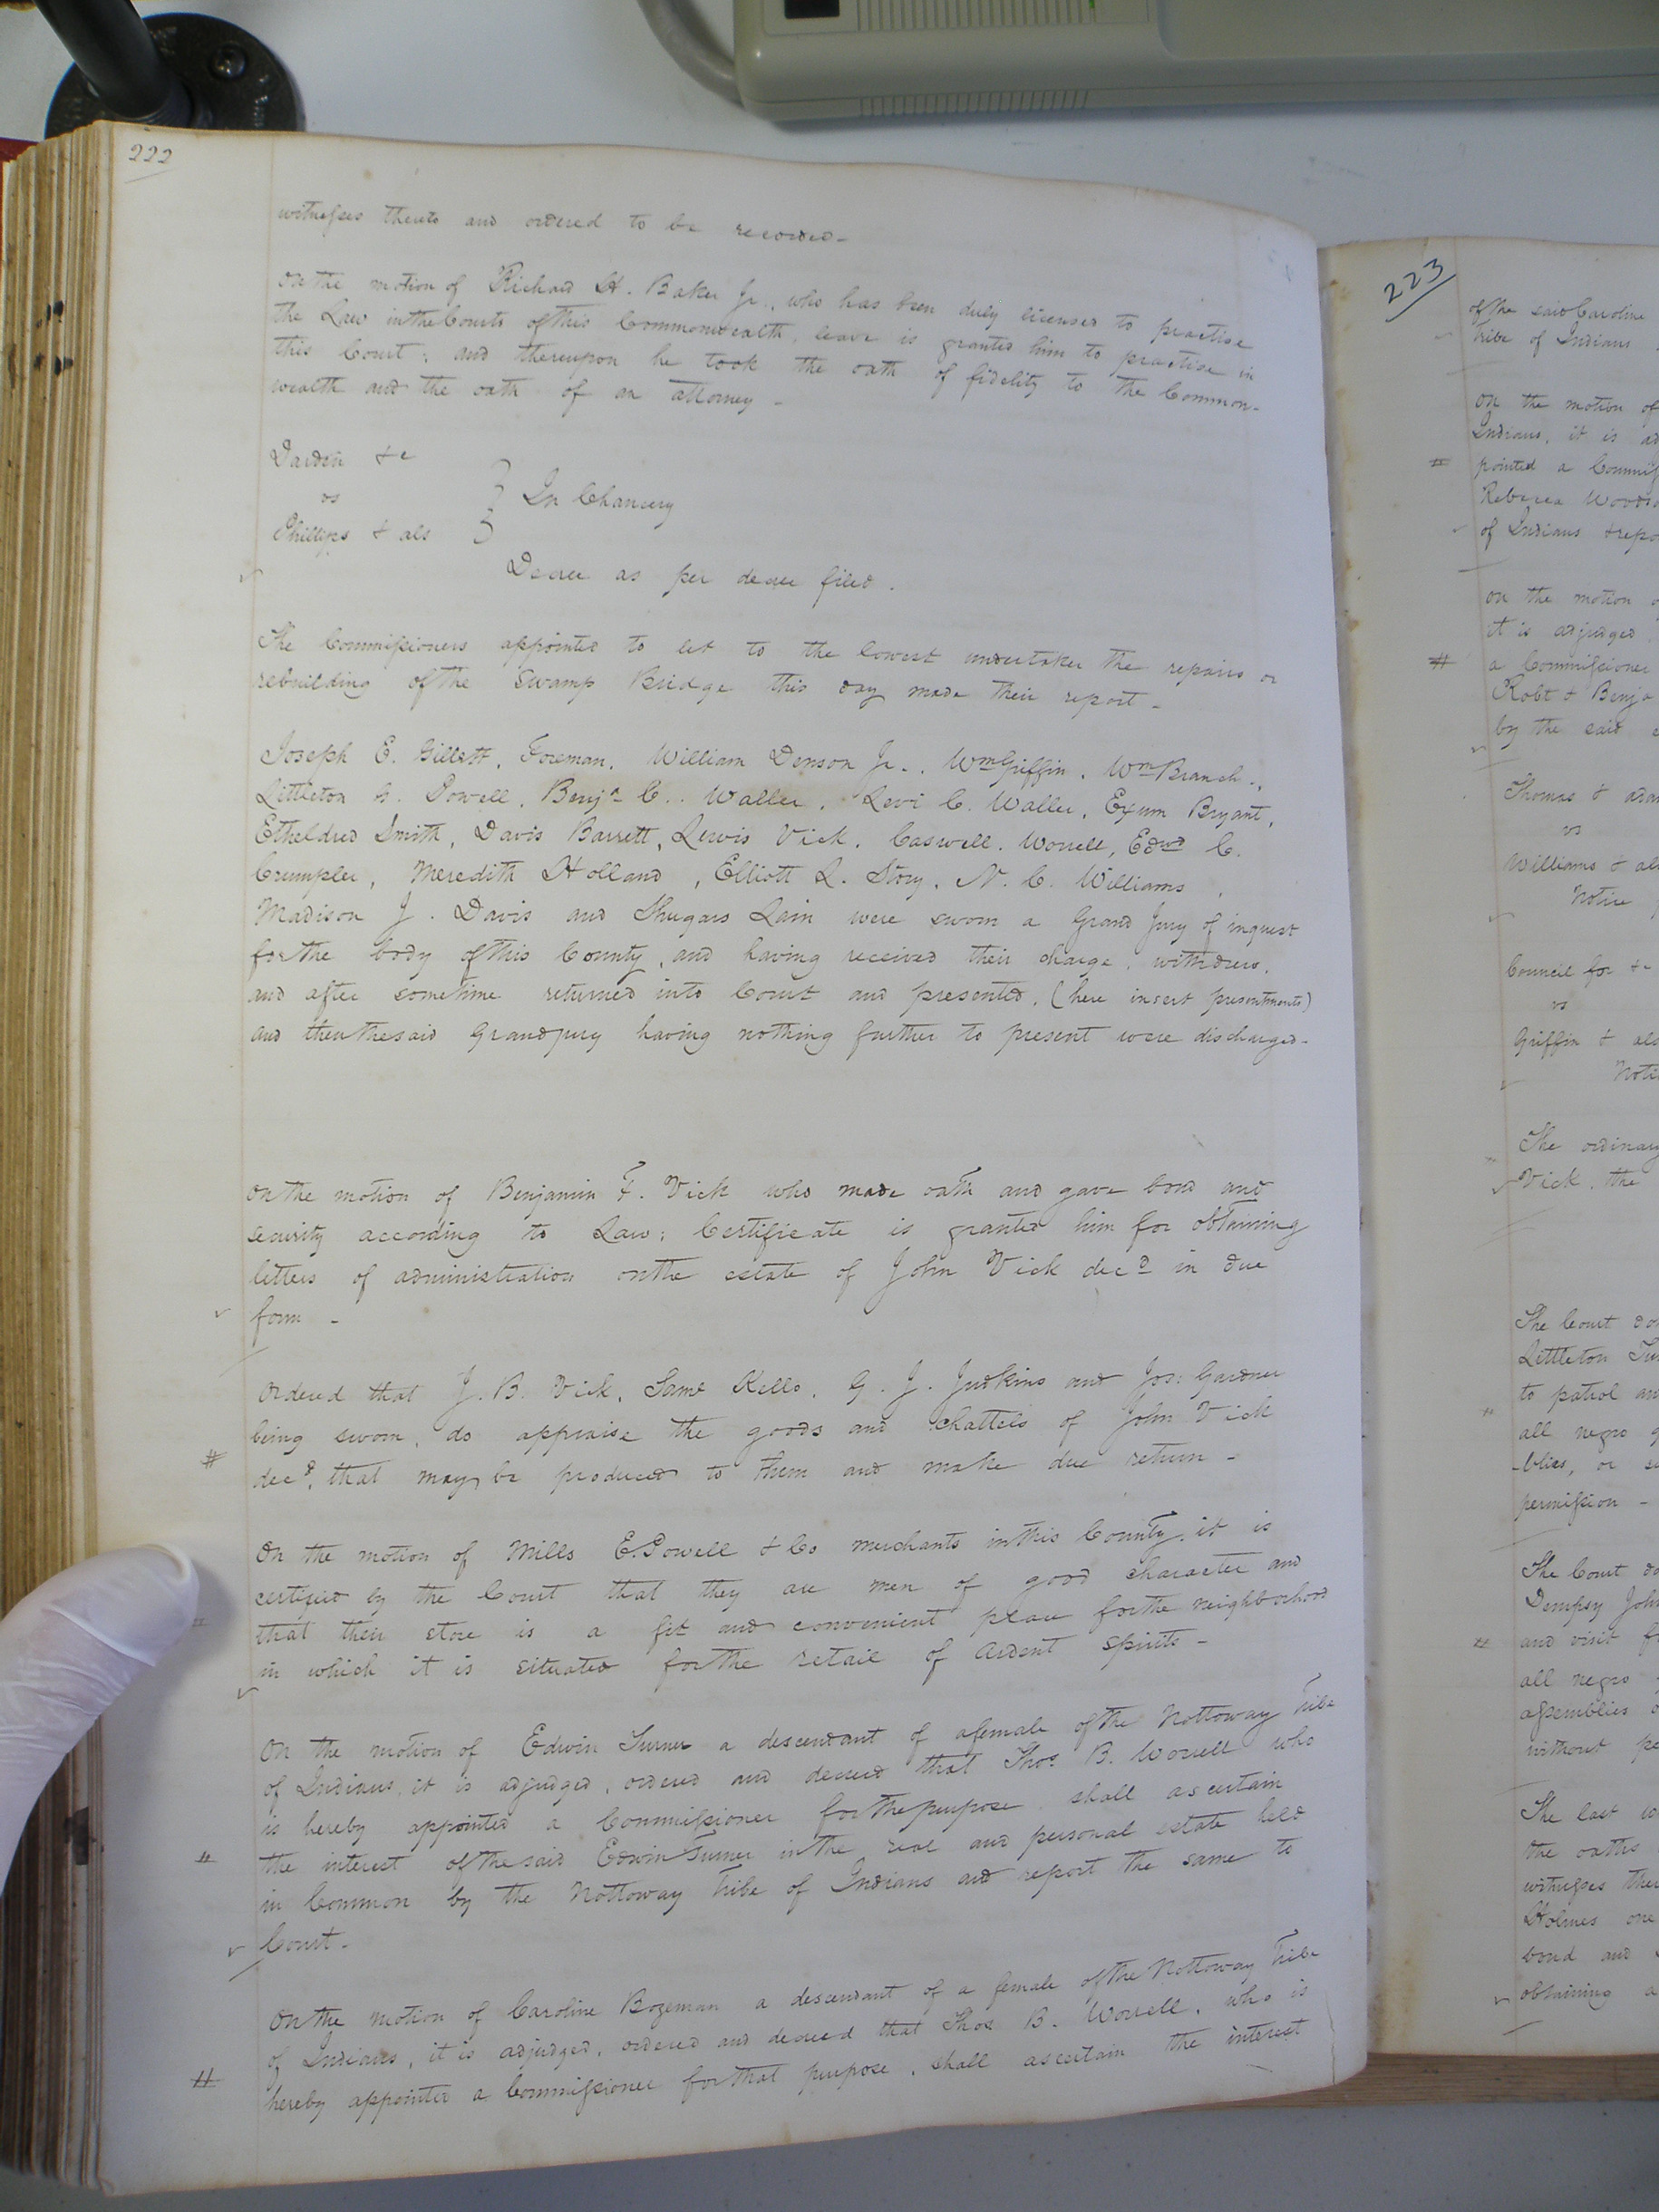 222
witnesses thereto and ordered to be recorded-
On the motion of Richard H. Baker Jr., who has been duly licensed to practise
the Law in the Courts of this Commonwealth, leave is granted him to practise in
this Court; and thereupon he took the oath of fidelity to the Common-
wealth and the oath of an attorney -
Darden &c
vs
In Chancery
Phillips & als
Decree as per decree filed.
The Commissioners appointed to let to the lowest undertaker the repairs or
rebuilding of the Swamp Bridge this day made their report -
Joseph E. Gillett, Foreman, William Denson Jr., Wm Griffin, Wm Branch,
Littleton Powell, Benja C. Waller, Levi C. Waller, Exum Bryant,
Etheldred Smith, Davis Barrett, Lewis Vick, Caswell Worrell, Edwd C.
Crumpler, Meredith Holland, Elliott L. Story, N. C. Williams,
Madison J. Davis and Shugars Lain were sworn a Grand Jury of inquest
for the body of this County, and having received their charge, withdrew,
and after sometime returned into Court and presented, (here insert presentments)
and then the said Grand jury having nothing further to present were discharged-
On the motion of Benjamin F. Vick who made oath and gave bond and
security according to Law; Certificate is granted him for obtaining
letters of administration on the estate of John Vick decd in due
form -
Ordered that J. B. Vick, Saml Kello, G. J. Judkins and Jos: Gardner
being sworn, do appraise the goods and chattels of John Vick
# decd, that may be produced to them and make due return -
On the motion of Mills E. Powell & Co merchants in this County, it is
certified by the Court that they are men of good character and
that their store is a fit and convenient place for the neighborhood
in which it is situated for the retail of ardent spirits -
On the motion of Edwin Turner a descendant of a female of the Nottoway Tribe
of Indians, it is adjudged, ordered and decreed that Thos. B. Worrell who
is hereby appointed a Commissioner for the purpose shall ascertain
# the interest of the said Edwin Turner in the real and personal estate held
in Common by the Nottoway Tribe of Indians and report the same to
Court-
On the motion of Caroline Bozeman a descendant of a female of the Nottoway Tribe
of Indians, it is adjudged, ordered and decreed that Thos B. Worrell, who is
# hereby appointed a Commissioner for that purpose, shall ascertain the interest
223
of the said Caroline
tribe of Indians
On the motion of
Indians, it is
# pointed a
Rebecca
of Indians
On the motion
it is adjudged
# a Commissioner
Robt & Benja
by the said
Thomas &
vs
Williams &
Notice
Council for &c
vs
Griffin &
The ordinary
Vick, the
The Court
Littleton
to patrol
all negro
-blies, or
permission -
The Court
Dempsy
and visit
all negro
assemblies
without
The last
the oaths
witnesses
Holmes one
bond and
obtaining a